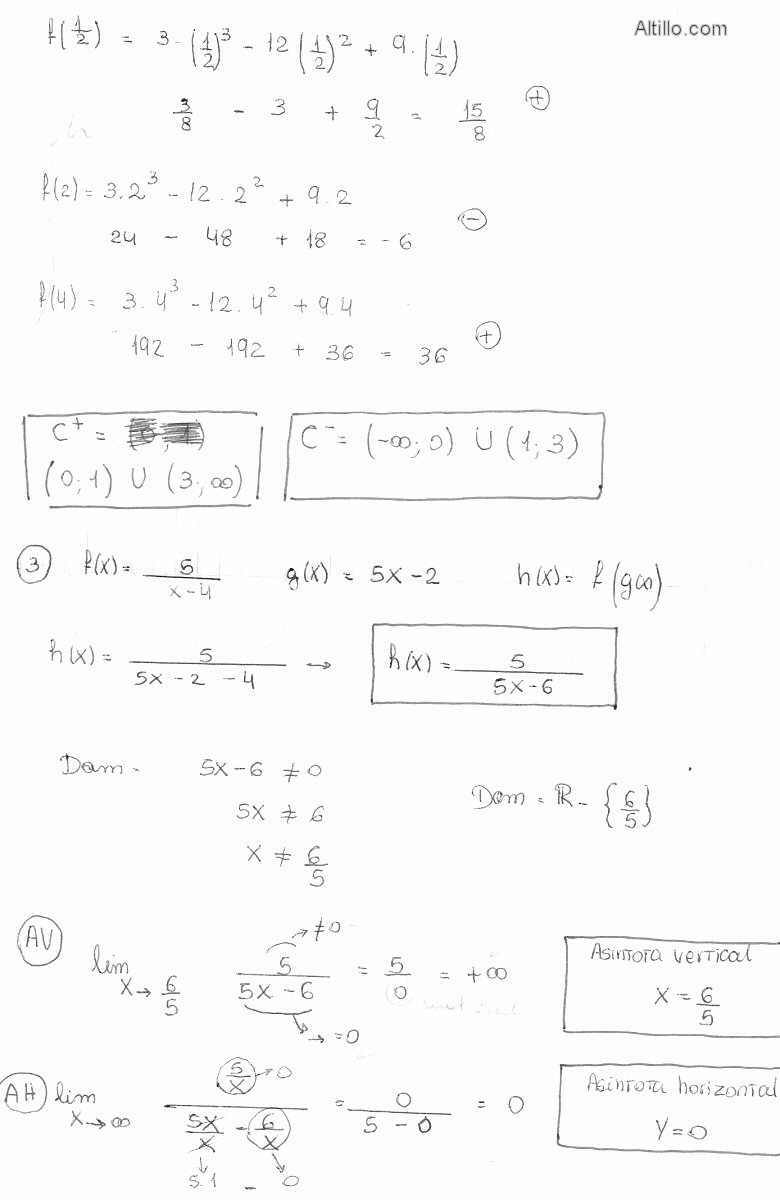 Altillo.com
f(1/2) = 3·(1/2)³ - 12(1/2)² + 9·(1/2)
3/8 - 3 + 9/2 = 15/8 ⊕
f(2) = 3.2³ - 12.2² + 9.2
24 - 48 + 18 = -6 ⊖
f(4) = 3.4³ - 12.4² + 9.4
192 - 192 + 36 = 36 ⊕
C⁺ =
(0;1) U (3;∞)
C⁻ = (-∞;0) U (1;3)
③ f(x) = 5/(x-4) g(x) = 5x-2 h(x) = f(g(x))
h(x) = 5/(5x-2-4) → h(x) = 5/(5x-6)
Dom = 5x-6 ≠ 0
5x ≠ 6
x ≠ 6/5
Dom = ℝ - {6/5}
AV lim x→6/5 5/(5x-6) = 5/0 = +∞
→ ≠0
→ =0
Asintota vertical
x = 6/5
AH lim x→∞ (5/x)/(5x/x - 6/x) = 0/(5-0) = 0
→ 0
↓ ↘
5.1 - 0
Asintota horizontal
y=0